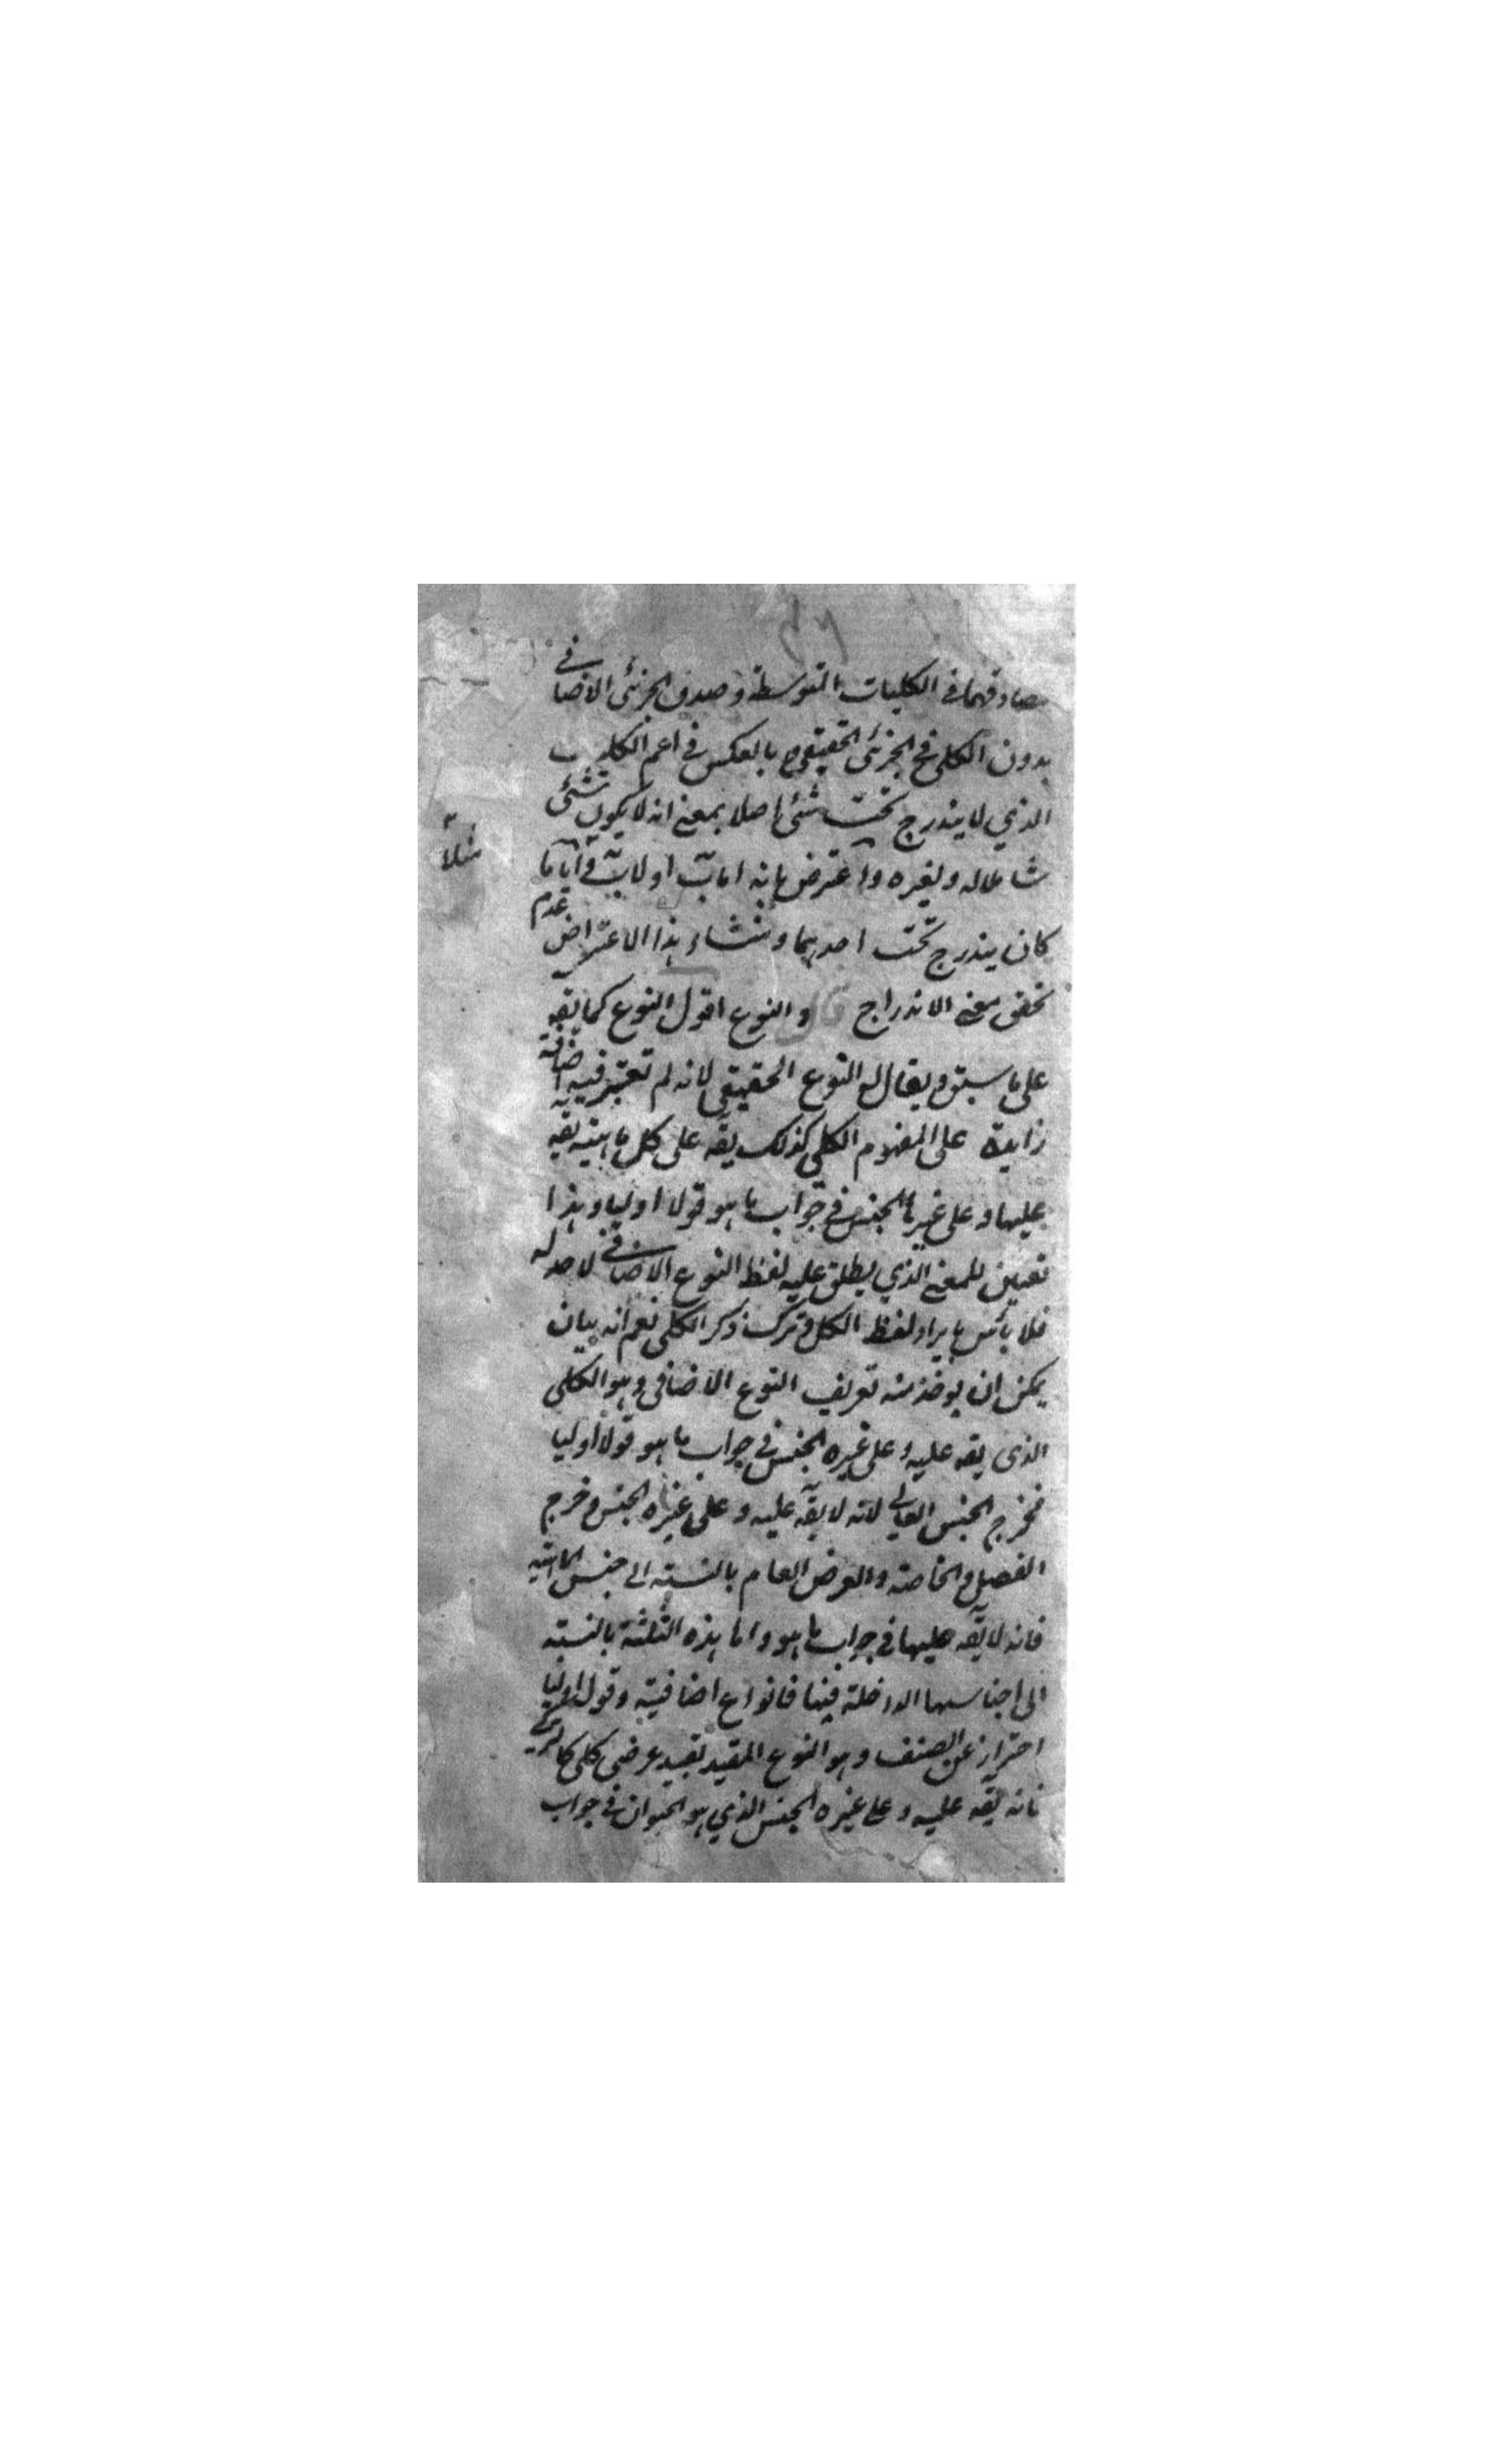 تصادقهما في الكليات المتوسطة وصدق الجزئي الاضافي
بدون الكلي في الجزئي الحقيقي وبالعكس في اعم الكليات
الذي لا يندرج تحت شئ اصلا بمعنى انه لا يكون شئ
شاملا له ولغيره واعترض بانه اما ب او لا ب و ايا ما
مثلا
كان يندرج تحت احدهما ومنشاء هذا الاعتراض عدم
تحقق معنى الاندراج قال والنوع اقول النوع كما يقه
على ما سبق ويقال له النوع الحقيقي لانه لم تعتبر فيه اضافة
زايدة على المفهوم الكلي كذلك يقه على كل ماهية يقه
عليها وعلى غيرها الجنس في جواب ما هو قولا اوليا وهذا
تعيين للمعنى الذي يطلق عليه لفظ النوع الاضافي لا حد له
فلا بأس بايراد لفظ الكل وترك ذكر الكلي نعم انه بيان
يمكن ان يوخذ منه تعريف النوع الاضافي وهو الكلي
الذي يقه عليه وعلى غيره الجنس في جواب ما هو قولا اوليا
فخرج الجنس العالي لانه لا يقه عليه وعلى غيره الجنس وخرج
الفصل والخاصة والعرض العام بالنسبة الى جنس الماهية
فانه لا يقه عليها في جواب ما هو واما هذه الثلثة بالنسبة
الى اجناسها الداخلة فيها فانواع اضافية وقوله اوليا
احتراز عن الصنف وهو النوع المقيد بقيد عرضي كلي كالتركي
فانه يقه عليه وعلى غيره الجنس الذي هو الحيوان في جواب